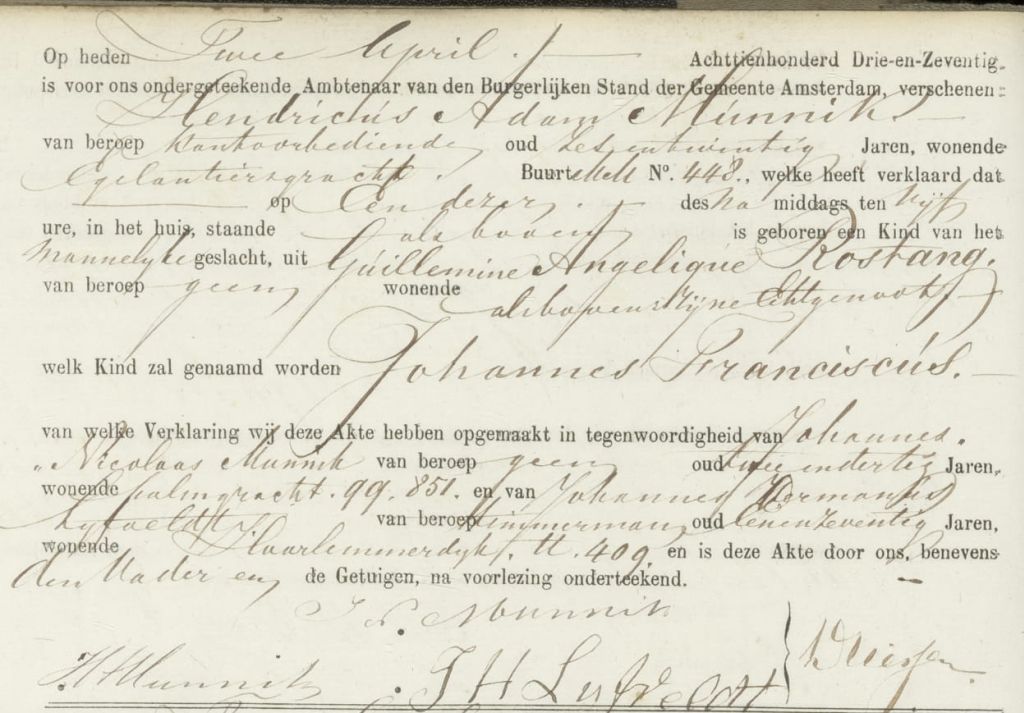 Op heden Twee April. Achttienhonderd Drie-en-Zeventig
is voor ons ondergeteekende Ambtenaar van den Burgerlijken Stand der Gemeente Amsterdam, verschenen:
Hendricus Adam Munnik
van beroep Kantoorbediende oud zesentwintig Jaren, wonende
Egelantiersgracht. Buurt No. 448., welke heeft verklaard dat
op Een dezer. des Na middags ten Vijf
ure, in het huis, staande als boven is geboren een Kind van het
Mannelyke geslacht, uit Guillemine Angelique Rostang.
van beroep geen wonende
als boven zijne Echtgenoot
welk Kind zal genaamd worden Johannes Franciscus.
van welke Verklaring wij deze Akte hebben opgemaakt in tegenwoordigheid van Johannes.
Nicolaas Munnik van beroep geen oud twee endertig Jaren,
wonende Palmgracht. 99. 851. en van Johannes Hermanus
Lytveldt van beroep timmerman oud Eenenzeventig Jaren,
wonende Haarlemmerdyk. tt. 409. en is deze Akte door ons, benevens
den Vader en de Getuigen, na voorlezing onderteekend.
J N. Munnik
H A Munnik J H Lytveldt